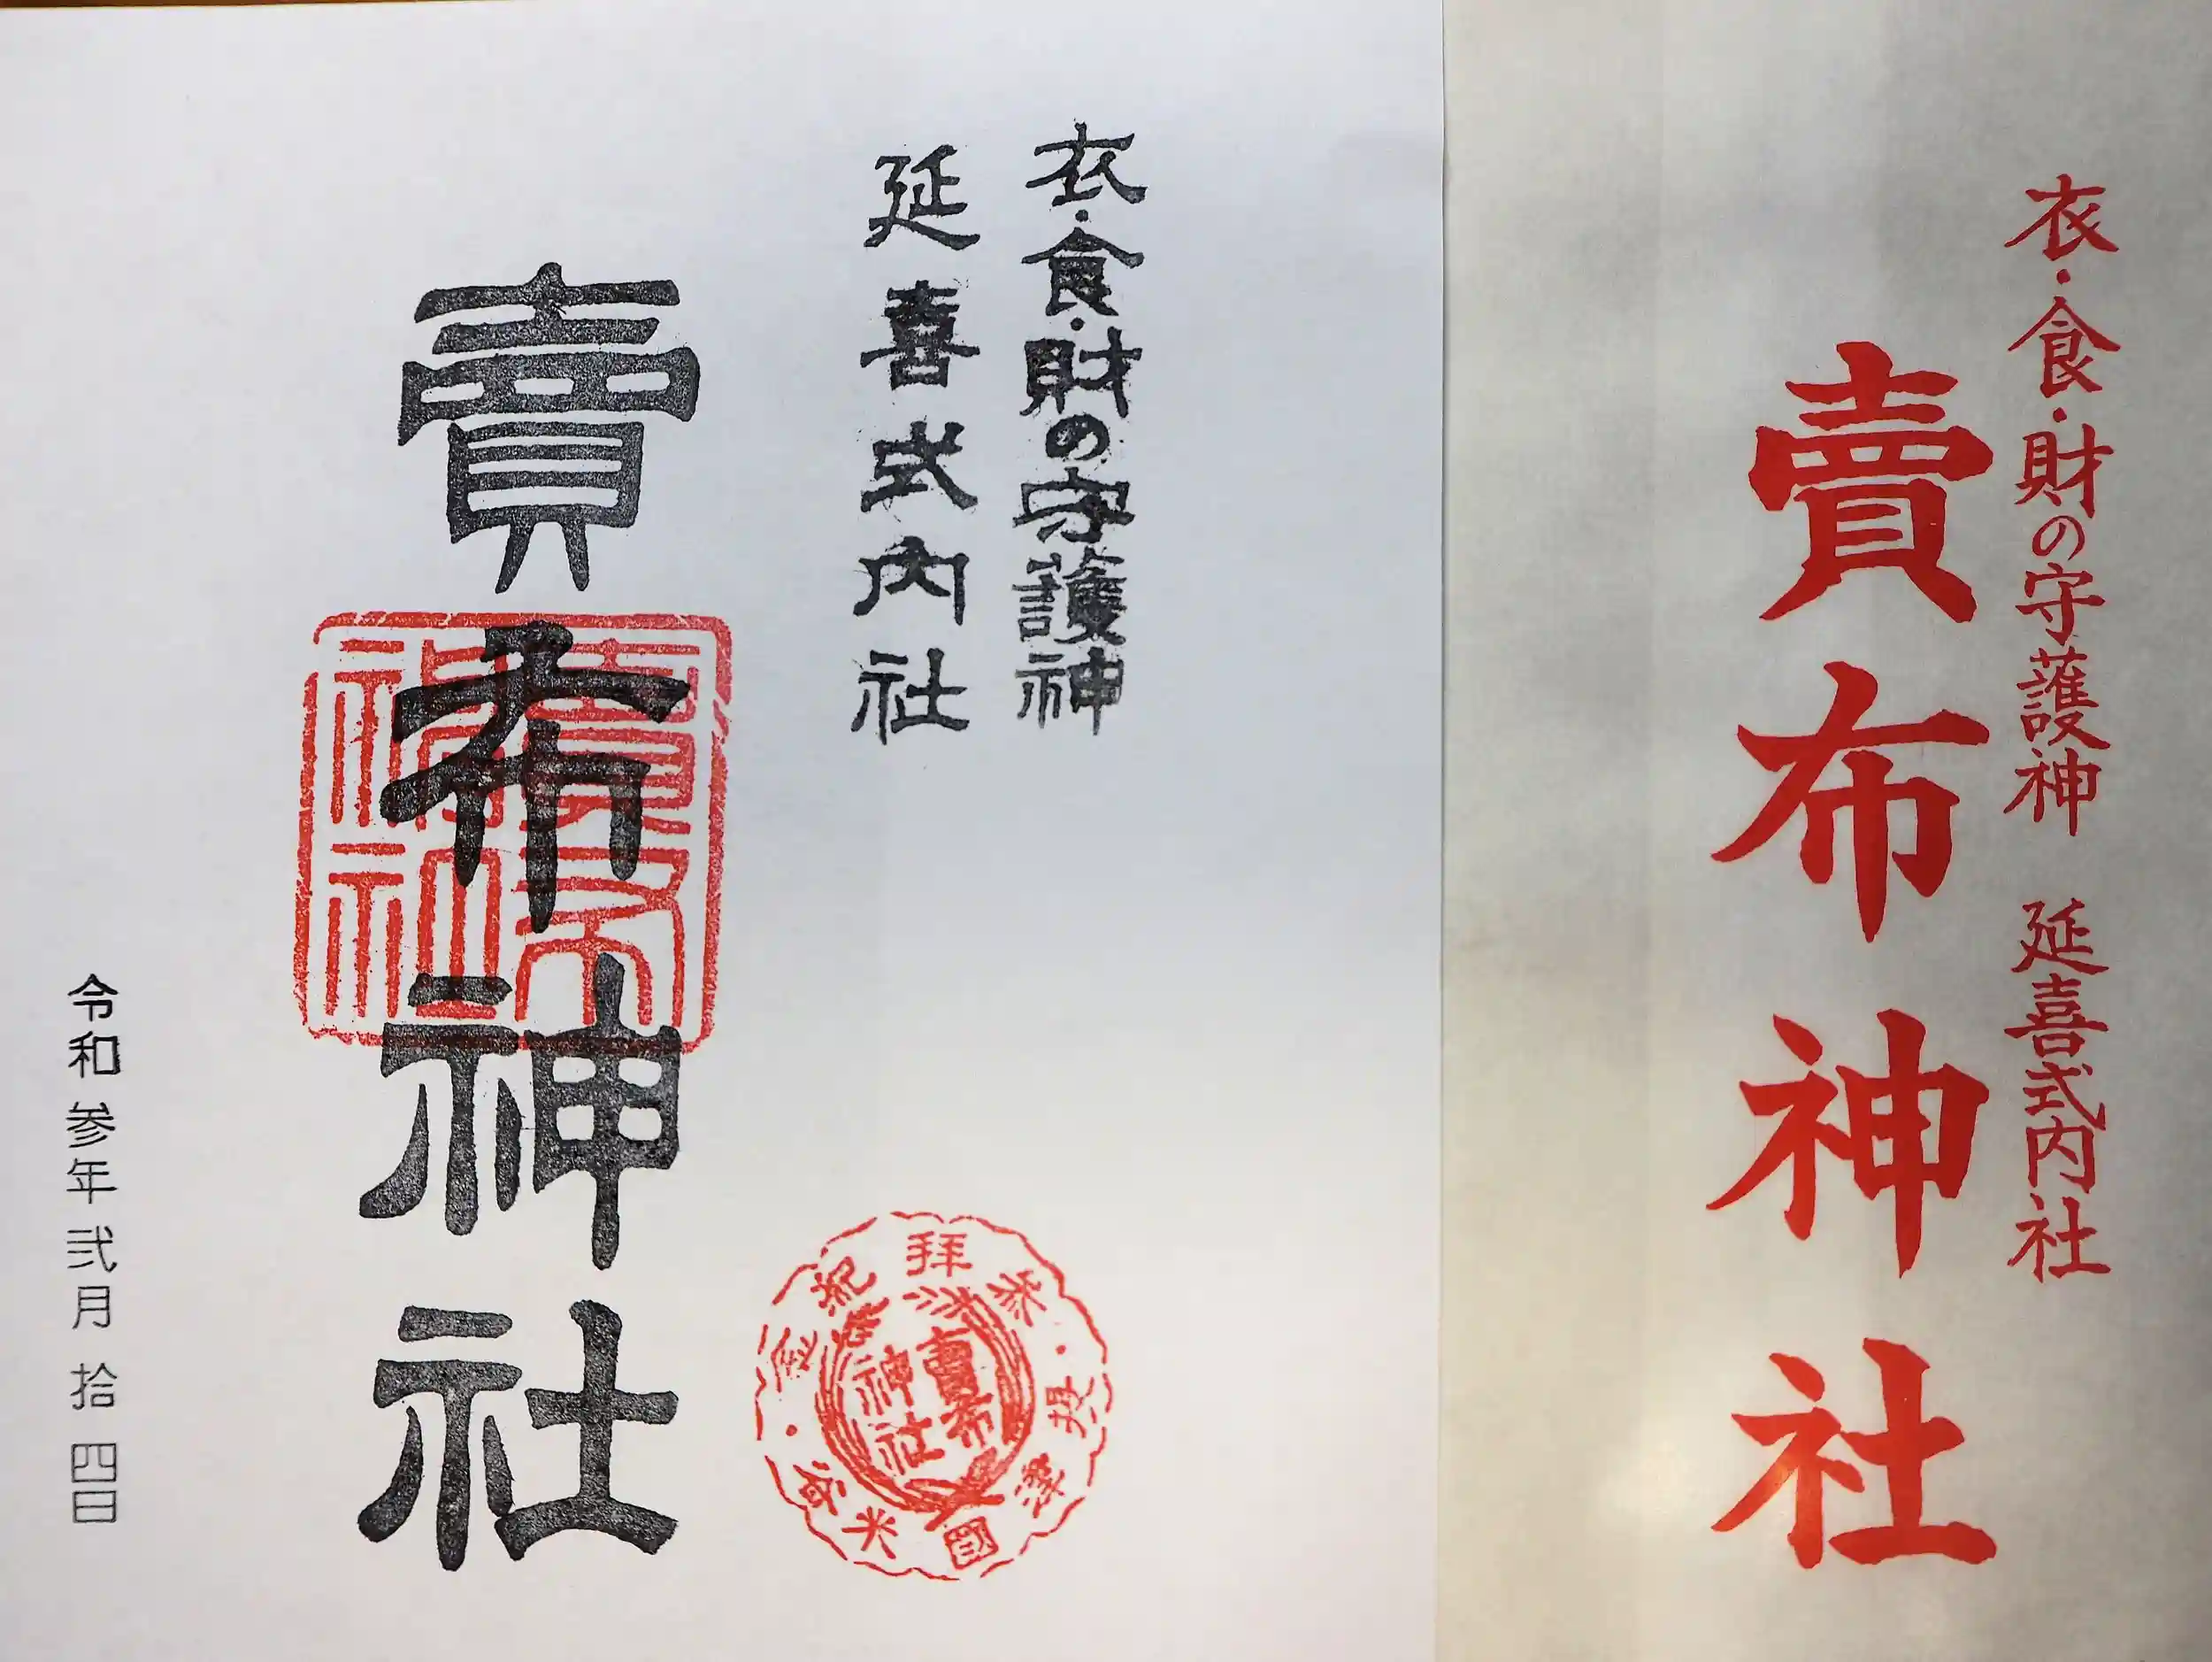 衣・食・財の守護神 延喜式内社
賣布神社
衣・食・財の守護神
延喜式内社
賣布神社
賣布神社
参拝紀念
摂津國米谷
賣布神社
令和参年弐月拾四日